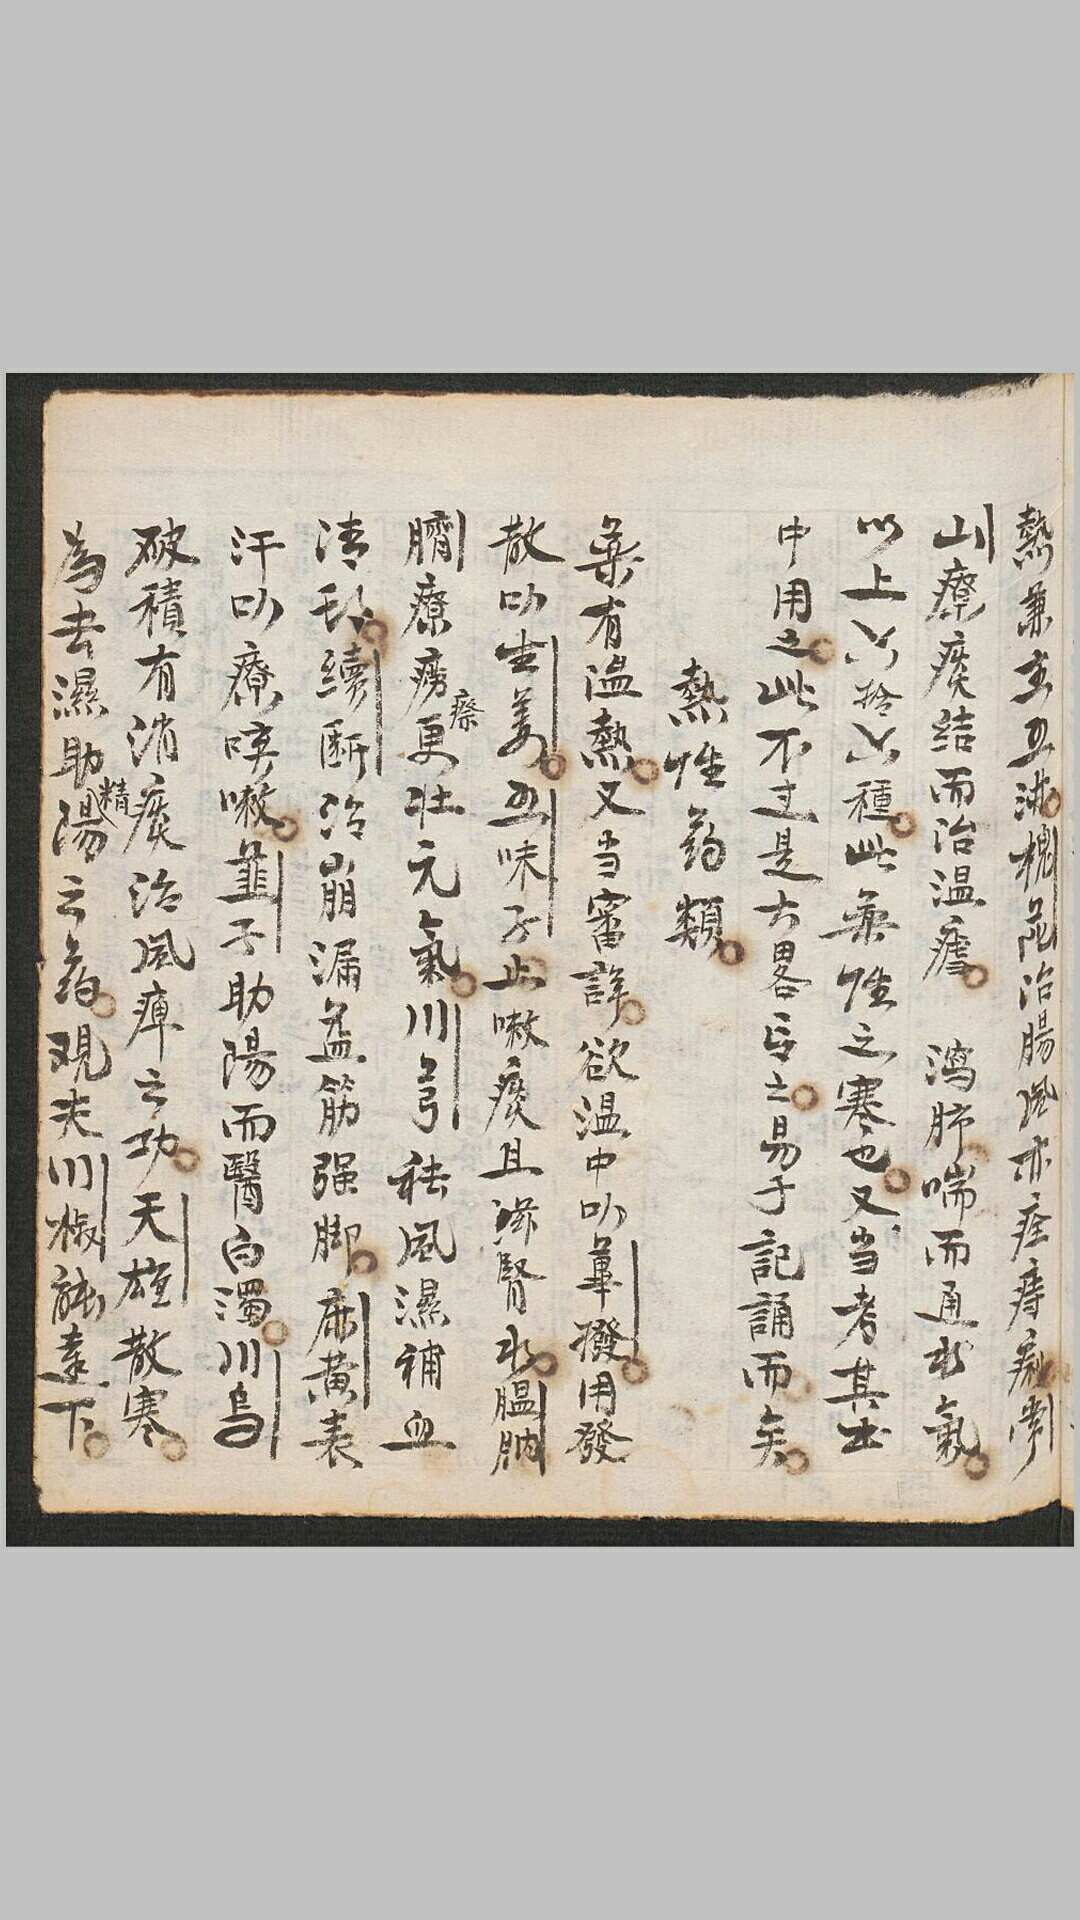 熱兼主五淋槐花治腸風亦痊痔痢常
山療痰结而治温瘧瀉肺喘而通水氣
以上六拾六種此药性之寒也又当考其出
中用之此不过是大畧言之易于記誦而矣
熱性药類
药有温熱又当審詳欲温中以蓽撥用發
散以生姜五味子止嗽痰且滋腎水膃肭
臍療癆瘵更壮元氣川芎祛風濕補血
清頭續断治崩漏益筋强脚麻黄表
汗以療咳嗽韮子助陽而醫白濁川烏
破積有消痰治風痺之功天雄散寒
為去濕助精陽之药观夫川椒能達下